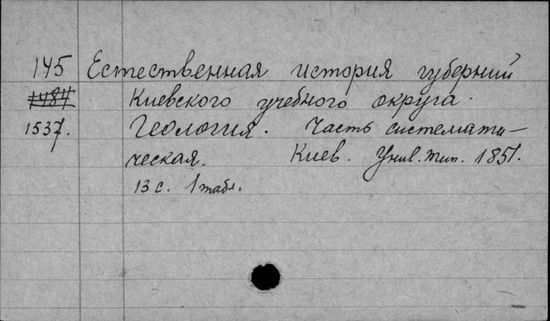 145 Естественная история губерний
1484 Киевского учебного округа.
1537. Геология. Часть система̄ти-
ческая. Киев. Унив. тип. 1851.
13 с. 1 табл.